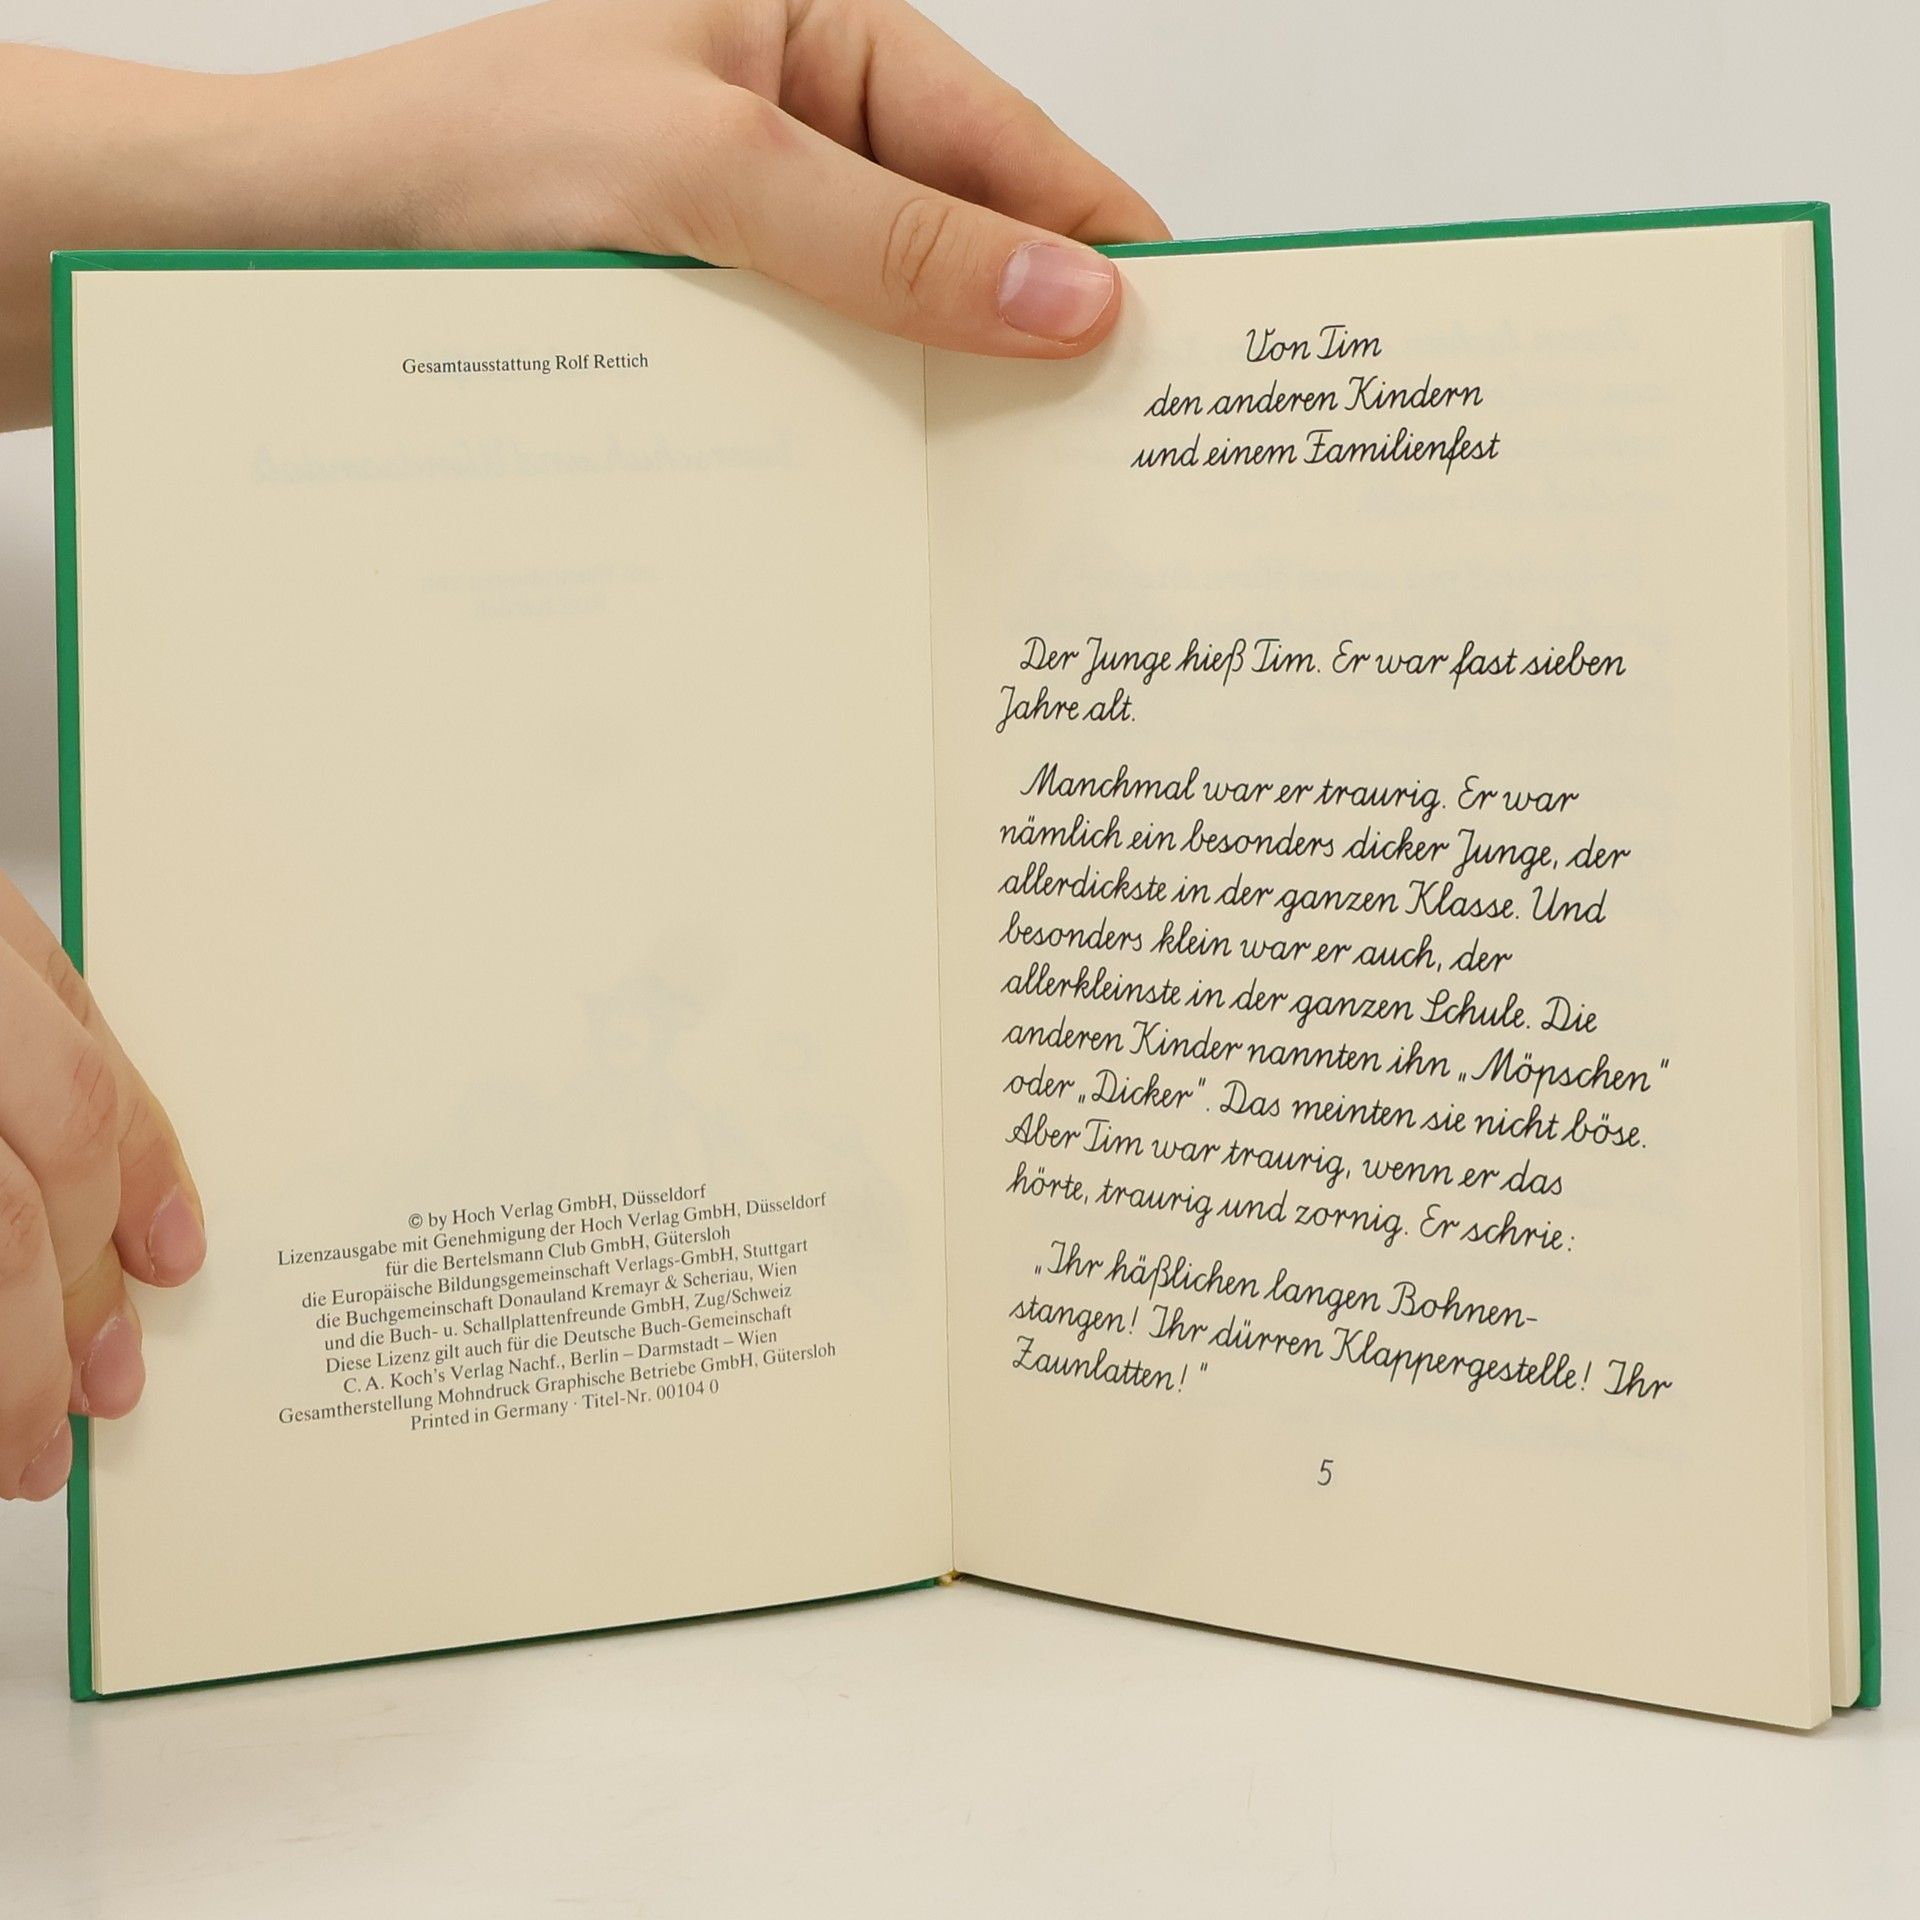 Gesamtausstattung Rolf Rettich
© by Hoch Verlag GmbH, Düsseldorf
Lizenzausgabe mit Genehmigung der Hoch Verlag GmbH, Düsseldorf
für die Bertelsmann Club GmbH, Gütersloh
die Europäische Bildungsgemeinschaft Verlags-GmbH, Stuttgart
die Buchgemeinschaft Donauland Kremayr & Scheriau, Wien
und die Buch- u. Schallplattenfreunde GmbH, Zug/Schweiz
Diese Lizenz gilt auch für die Deutsche Buch-Gemeinschaft
C. A. Koch's Verlag Nachf., Berlin – Darmstadt – Wien
Gesamtherstellung Mohndruck Graphische Betriebe GmbH, Gütersloh
Printed in Germany · Titel-Nr. 00104 0
Von Tim
den anderen Kindern
und einem Familienfest
Der Junge hieß Tim. Er war fast sieben
Jahre alt.
Manchmal war er traurig. Er war
nämlich ein besonders dicker Junge, der
allerdickste in der ganzen Klasse. Und
besonders klein war er auch, der
allerkleinste in der ganzen Schule. Die
anderen Kinder nannten ihn „Möpschen"
oder „Dicker". Das meinten sie nicht böse.
Aber Tim war traurig, wenn er das
hörte, traurig und zornig. Er schrie:
„Ihr häßlichen langen Bohnen-
stangen! Ihr dürren Klappergestelle! Ihr
Zaunlatten!"
5